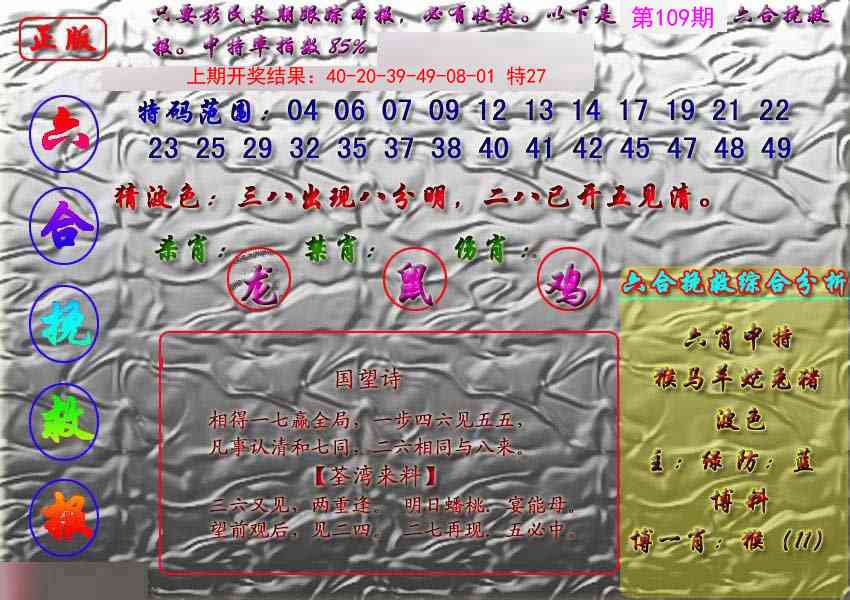 正版
只要彩民长期跟踪本报，必有收获。以下是 第109期 六合挽救
报。中特率指数85%
上期开奖结果：40-20-39-49-08-01 特27
特码范围：04 06 07 09 12 13 14 17 19 21 22
23 25 29 32 35 37 38 40 41 42 45 47 48 49
猜波色：三八出现八分明，二八已开五见清。
杀肖：龙 禁肖：鼠 伤肖：鸡
六合挽救报
国望诗
相得一七赢全局，一步四六见五五，
凡事认清和七同，二六相同与八来。
【荃湾来料】
三六又见，两重逢。 明日蟠桃，宴能母。
望前观后，见二四。 二七再现，五必中。
六合挽救综合分析
六肖中特
猴马羊蛇兔猪
波色
主：绿防：蓝
博料
博一肖：猴（11）